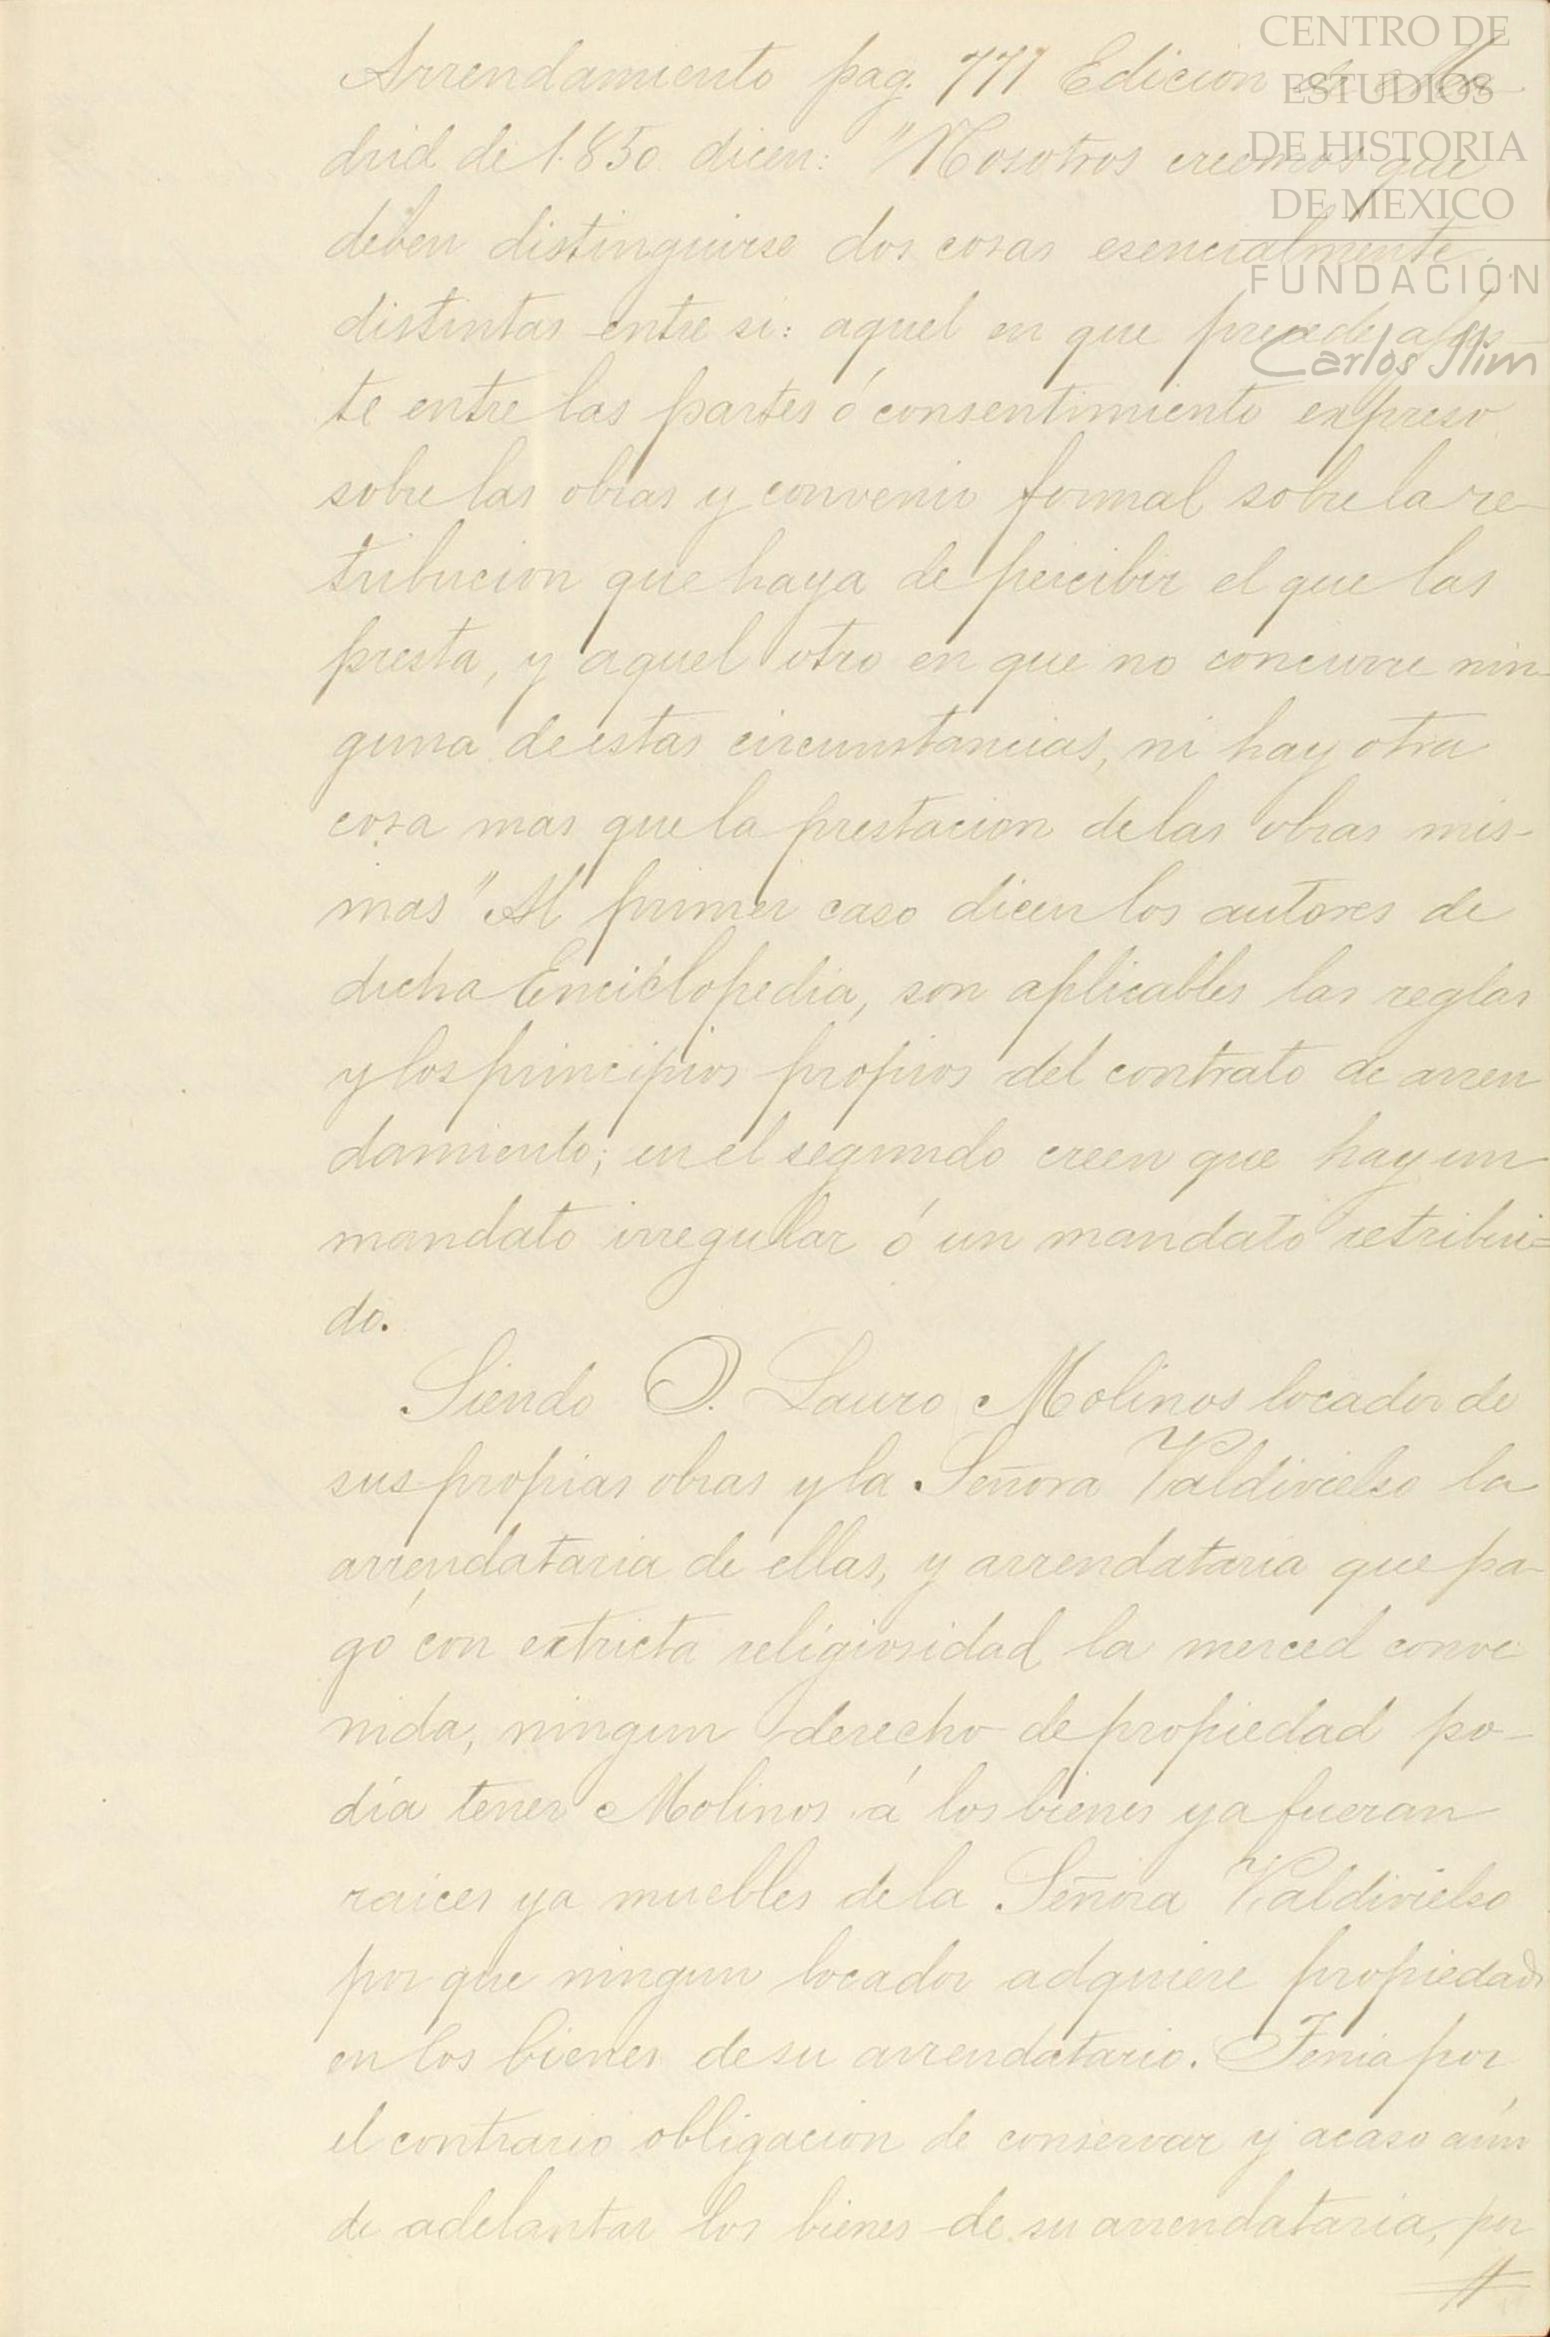 CENTRO DE
ESTUDIOS
DE HISTORIA
DE MEXICO
FUNDACIÓN
Carlos Slim
Arrendamiento pag. 771 Edicion de Ma-
drid de 1.850 dicen: "Nosotros creemos que
deben distinguirse dos cosas esencialmente
distintas entre si: aquel en que precede ajus-
te entre las partes ó consentimiento expreso
sobre las obras y convenio formal sobre la re-
tribucion que haya de percibir el que las
presta, y aquel otro en que no concurre nin-
guna de estas circunstancias, ni hay otra
cosa mas que la prestacion de las obras mis-
mas" Al primer caso dicen los autores de
dicha Enciclopedia, son aplicables las reglas
y los principios propios del contrato de arren
damiento; en el segundo creen que hay un
mandato irregular ó un mandato retribui=
do.
Siendo D. Lauro Molinos locador de
sus propias obras y la Señora Valdivielso la
arrendataria de ellas, y arrendataria que pa-
gó con extricta religiosidad la merced conve
nida, ningun derecho de propiedad po-
día tener Molinos á los bienes ya fueran
raices ya muebles de la Señora Valdivielso
por que ningun locador adquiere propiedad
en los bienes de su arrendatario. Tenia por
el contrario obligacion de conservar y acaso aún
de adelantar los bienes de su arrendataria, por